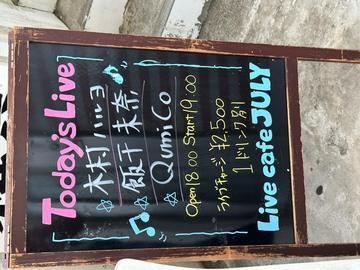 Today's Live
☆木村ハルーヨ
☆飯干未奈
☆Qumi Co
Open18:00 Start19:00
ライブチャージ ¥2,500
1ドリンク別
Live cafe JULY